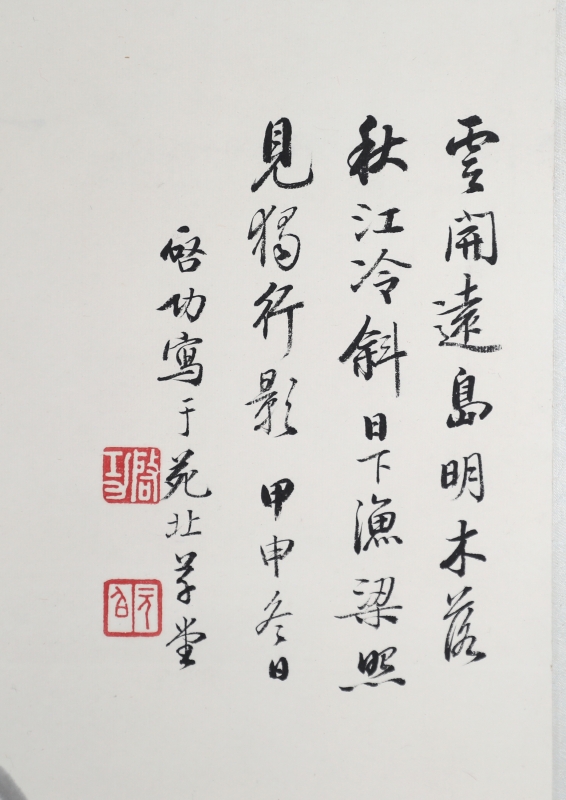 雲開遠島明木落
秋江冷斜日下漁梁照
見獨行影 甲申冬日
啓功寫于苑北草堂
啓功
元白